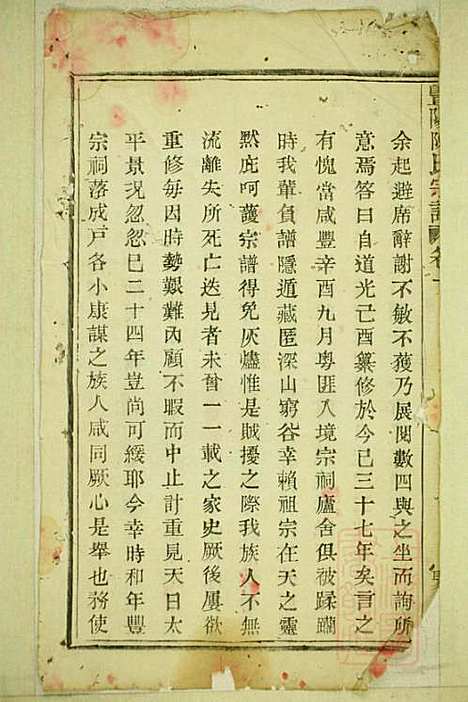 豐陽陳氏宗譜 卷一
余起避席辭謝不敏不獲乃展閱數四與之坐而詢所
意焉答曰自道光己酉纂修於今已三十七年矣言之
有愧當咸豐辛酉九月粵匪入境宗祠廬舍俱被蹂躪
時我輩負譜隱遁藏匿深山窮谷幸賴祖宗在天之靈
默庇呵護宗譜得免灰燼惟是賊擾之際我族人不無
流離失所死亡迭見者未曾一一載之家史厥後屢欲
重修每因時勢艱難內顧不暇而中止計重見天日太
平景況忽忽已二十四年豈尚可緩耶今幸時和年豐
宗祠落成戶各小康謀之族人咸同厥心是舉也務使